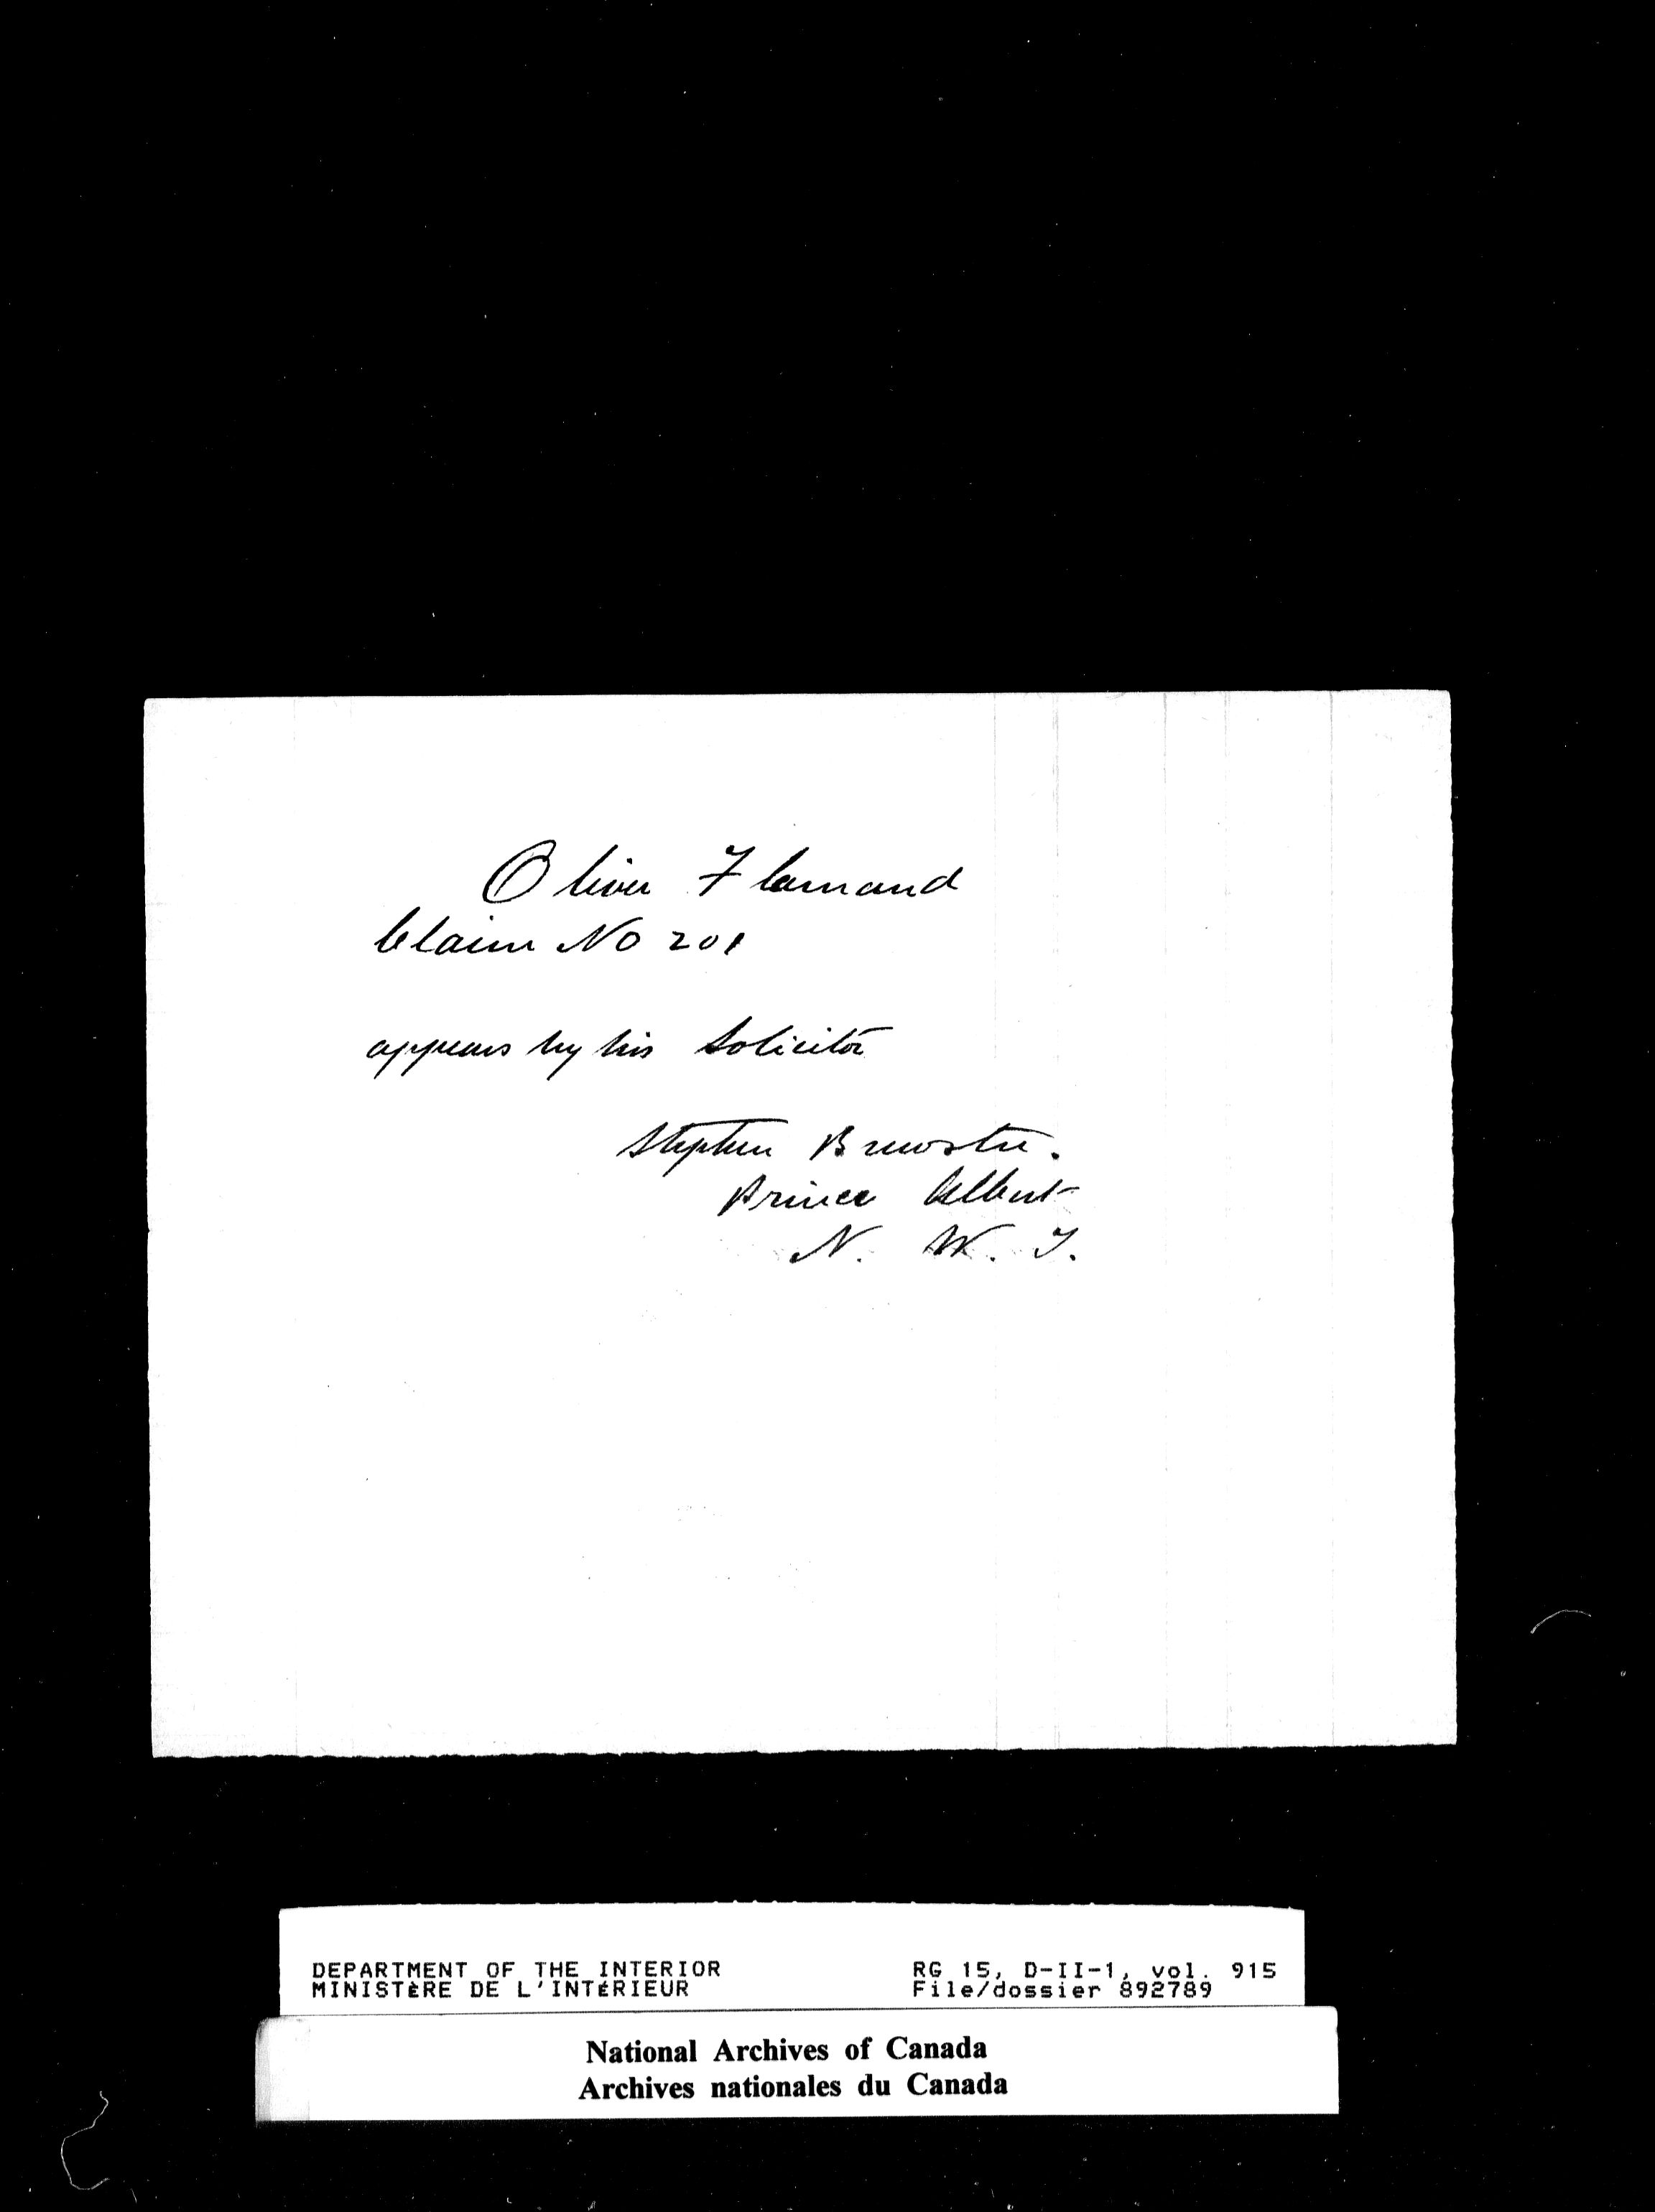 Oliver Flamand
Claim No 201
appears by his Solicitor
Stephen Brewster.
Prince Albert
N. W. T.
DEPARTMENT OF THE INTERIOR
MINISTÈRE DE L'INTÉRIEUR
RG 15, D-II-1, vol. 915
File/dossier 892789
National Archives of Canada
Archives nationales du Canada